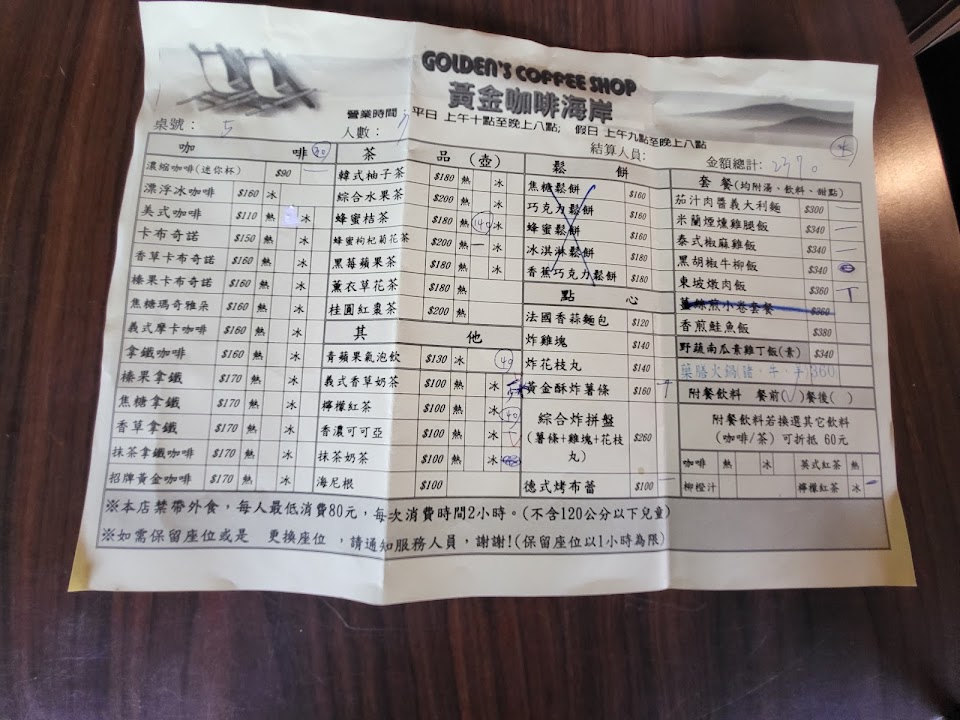 GOLDEN'S COFFEE SHOP
黃金咖啡海岸
營業時間：平日 上午十點至晚上八點; 假日 上午九點至晚上八點
桌號： 5 人數： 結算人員: 金額總計: 2370
咖 啡
濃縮咖啡(迷你杯) $90
漂浮冰咖啡 $160 冰
美式咖啡 $110 熱 冰
卡布奇諾 $150 熱 冰
香草卡布奇諾 $160 熱 冰
榛果卡布奇諾 $160 熱 冰
焦糖瑪奇雅朵 $160 熱 冰
義式摩卡咖啡 $160 熱 冰
拿鐵咖啡 $160 熱 冰
榛果拿鐵 $170 熱 冰
焦糖拿鐵 $170 熱 冰
香草拿鐵 $170 熱 冰
抹茶拿鐵咖啡 $170 熱 冰
招牌黃金咖啡 $170 熱 冰
茶 品 (壺)
韓式柚子茶 $180 熱 冰
綜合水果茶 $200 熱 冰
蜂蜜桔茶 $180 熱 冰
蜂蜜枸杞菊花茶 $200 熱 冰
黑莓蘋果茶 $180 熱 冰
薰衣草花茶 $180 熱
桂圓紅棗茶 $200 熱
其 他
青蘋果氣泡飲 $130 冰
義式香草奶茶 $100 熱 冰
檸檬紅茶 $100 熱 冰
香濃可可亞 $100 熱 冰
抹茶奶茶 $100 熱 冰
海尼根 $100
鬆 餅
焦糖鬆餅 $160
巧克力鬆餅 $160
蜂蜜鬆餅 $160
冰淇淋鬆餅 $180
香蕉巧克力鬆餅 $180
點 心
法國香蒜麵包 $120
炸雞塊 $140
炸花枝丸 $140
黃金酥炸薯條 $160
綜合炸拼盤
(薯條+雞塊+花枝
丸) $260
德式烤布蕾 $100
套 餐(均附湯、飲料、甜點)
茄汁肉醬義大利麵 $300
米蘭煙燻雞腿飯 $340
泰式椒麻雞飯 $340
黑胡椒牛柳飯 $340
東坡燉肉飯 $360
薑絲煎小卷套餐 $360
香煎鮭魚飯 $380
野蔬南瓜素雞丁飯(素) $340
藥膳火鍋(豬、牛、羊)360
附餐飲料 餐前(✓)餐後( )
附餐飲料若換選其它飲料
(咖啡/茶) 可折抵 60元
咖啡 熱 冰 英式紅茶 熱
柳橙汁 檸檬紅茶 冰
※本店禁帶外食，每人最低消費80元，每次消費時間2小時。(不含120公分以下兒童)
※如需保留座位或是 更換座位 ，請通知服務人員，謝謝!(保留座位以1小時為限)